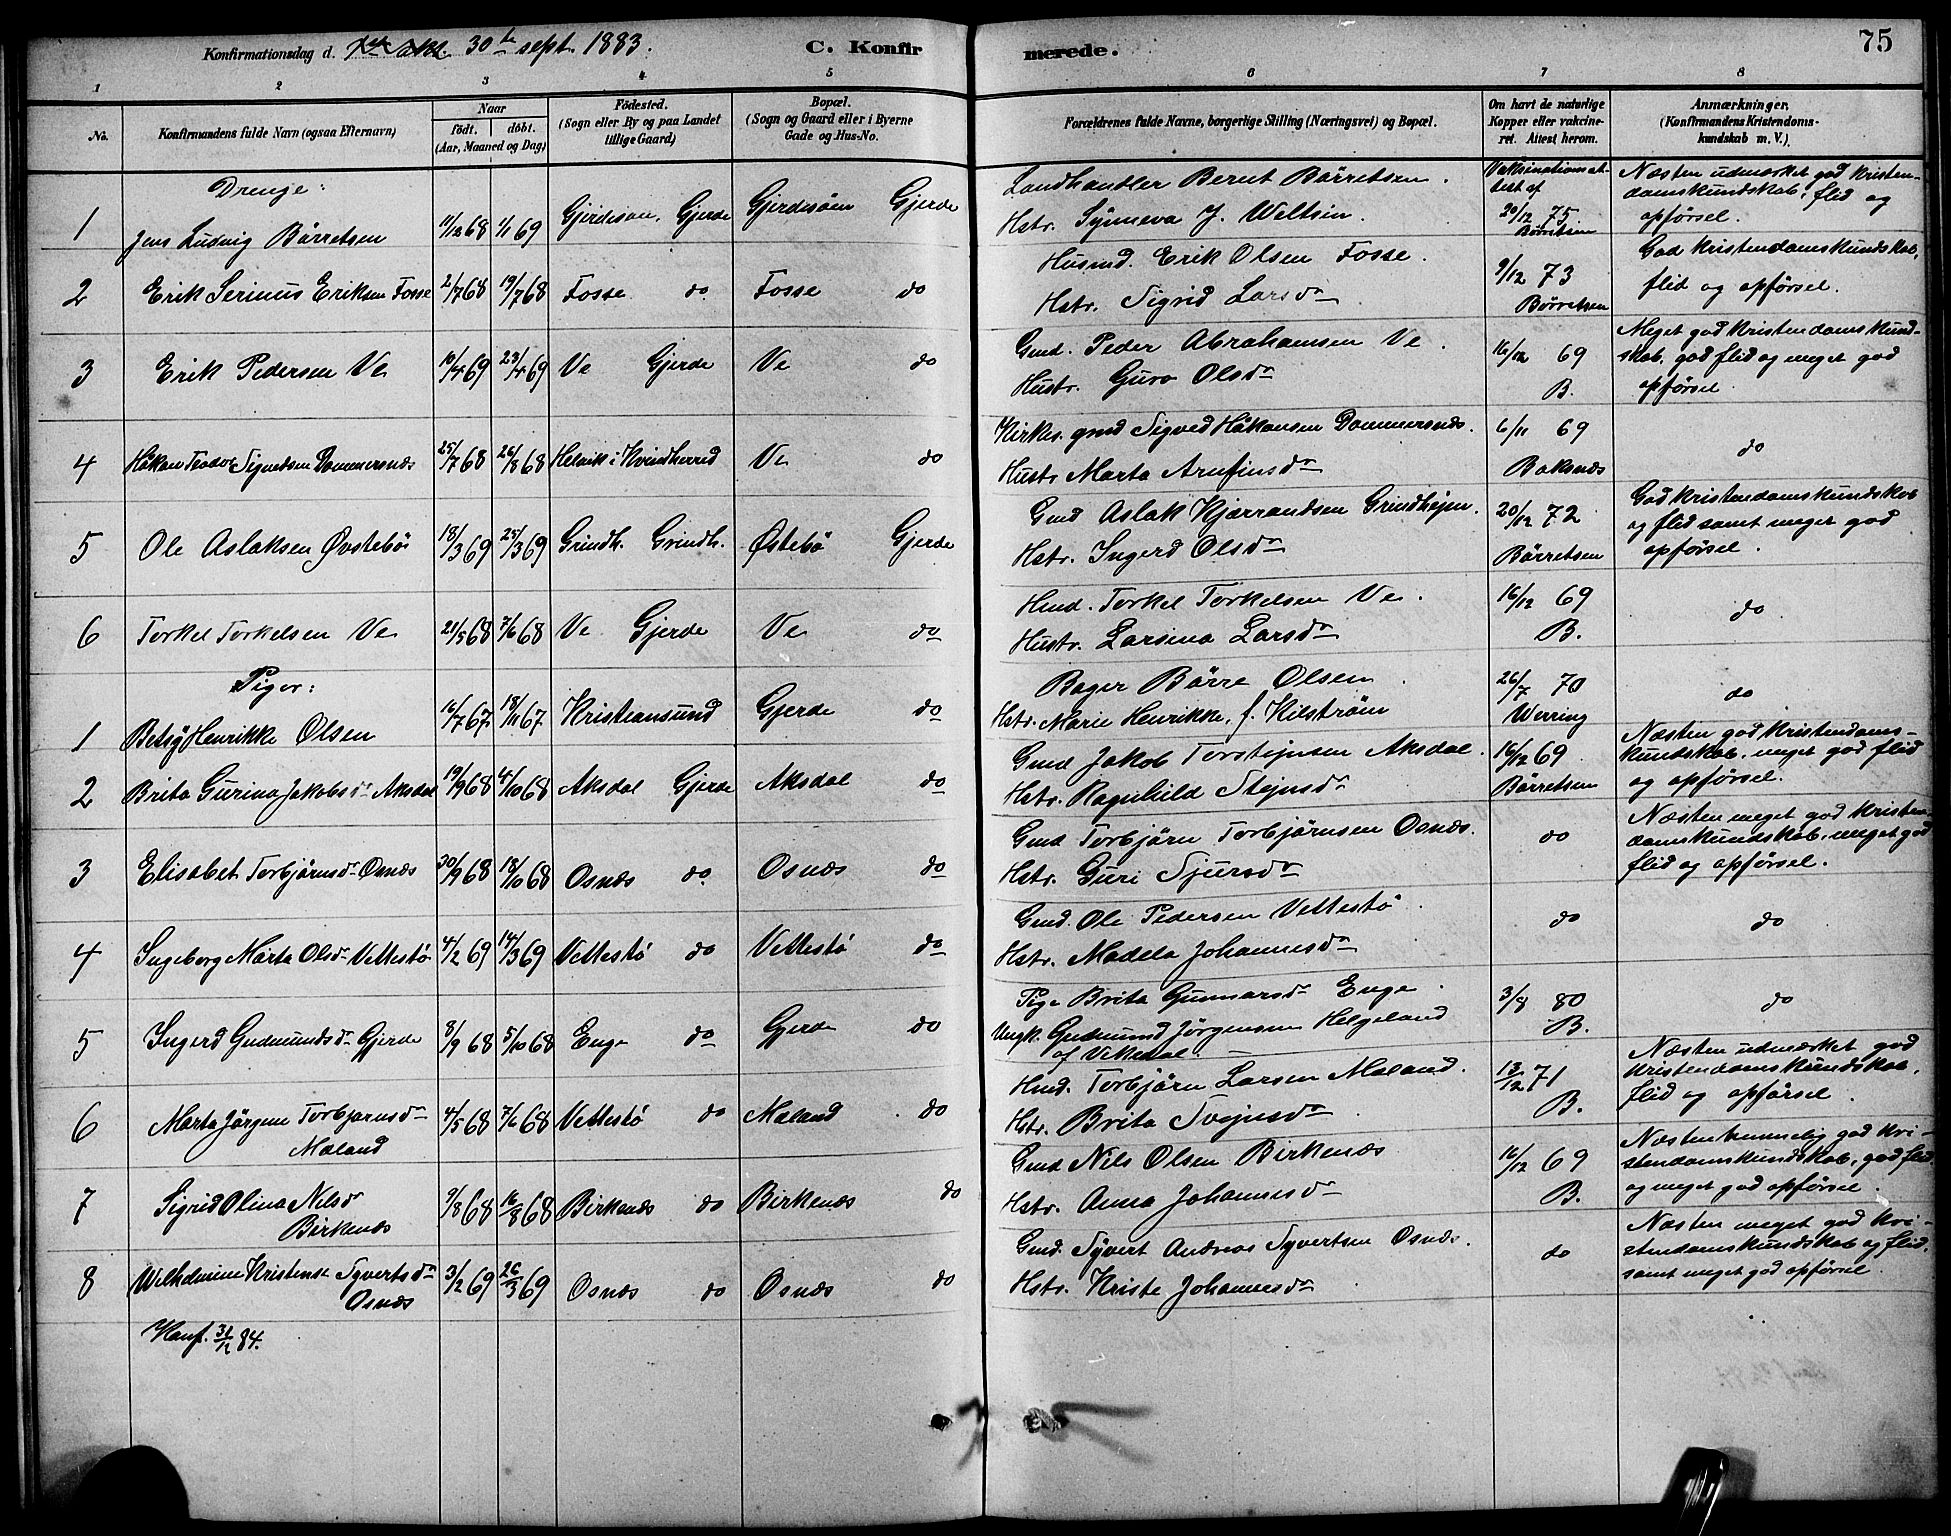 Konfirmationsdag d. 30te sept. 1883. C. Konfirmerede. 75
1 2 3 4 5 6 7 8
No. Konfirmandens fulde Navn (ogsaa Efternavn) Naar födt. döbt. (Aar, Maaned og Dag) Födested. (Sogn eller By og paa Landet tillige Gaard) Bopæl. (Sogn og Gaard eller i Byerne Gade og Hus-No. Forældrenes fulde Navne, borgerlige Stilling (Næringsvei) og Bopæl. Om havt de naturlige Kopper eller vakcineret. Attest herom. Anmærkninger. (Konfirmandens Kristendomskundskab m. V.)
Drenge:
1 Jens Ludvig Börretsen 11/12 68 1/1 69 Gjerde Gjerde Landhandler Bernt Börretsen. Vaksinationsattest af Næsten udmærket god kristendomskundskab, flid og opförsel.
Hstr. Synneva J. Weltzin. 20/12 75. Börretsen
2 Erik Serinus Eriksen Fosse 2/7 68 19/7 68 Fosse do Fosse do Husmd. Erik Olsen Fosse. 9/12 73 God kristendomskundskab, flid og opförsel.
Hstr. Sigrid Larsdr Börretsen
3 Erik Pedersen Ve 10/4 69 23/4 69 Ve Gjerde Ve do Gmd. Peder Abrahamsen Ve. 16/12 69 Meget god kristendomskundskab, god flid og meget god opförsel.
Hustr. Guro Olsdr B.
4 Håkon Teodor Sigvedsen Dommersnæs 25/7 68 26/8 68 i Kvindherred Ve do Kirkes. gmd Sigved Håkonsen Dommersnæs. 6/11 69 do
Hustr. Marta Arnfinsdr Baksnæs
5 Ole Aslaksen Øvstebö 18/3 69 25/3 69 Grindh. Grindh. Østebö Gjerde Gmd Aslak Kjærrandsen Grindhejm. 20/12 72 God kristendomskundskab og flid samt meget god opförsel.
Hstr. Ingerd Olsdr Börretsen
6 Torkel Torkelsen Ve 21/5 68 7/6 68 Ve Gjerde Ve do Hmd. Torkel Torkelsen Ve. 16/12 69 do
Hustr. Larsina Larsdr B.
Piger:
1 Betsy Henrikke Olsen 16/7 67 18/11 67 Kristiansund Gjerde do Bager Börre Olsen. 26/7 70 do
Hstr. Marie Henrikke, f. Kilström Werring
2 Brita Gurina Jakobsdr Aksdal 19/9 68 4/10 68 Aksdal Gjerde Aksdal do Gmd Jakob Torstejnsen Aksdal. 16/12 69 Næsten god kristendomskundskab, meget god flid og opförsel.
Hstr. Ragnhild Stejnsdr Börretsen
3 Elisabet Torbjörnsdr Osnæs 30/9 68 18/10 68 Osnæs do Osnæs do Gmd Torbjörn Torbjörnsen Osnæs. do Næsten meget god kristendomskundskab, meget god flid og opförsel.
Hstr. Guri Sjursdr
4 Ingeborg Marta Olsdr Vettestö 4/2 69 14/3 69 Vettestö do Vettestö do Gmd. Ole Pedersen Vettestö. do do
Hstr. Madela Johannesdr
5 Ingerd Gudmundsdr Gjerde 8/9 68 5/10 68 Enge do Gjerde do Pige Brita Gunnarsdr Enge. 3/8 80 do
Ungk. Gudmund Jörgensen Helgeland af Vikedal. B.
6 Marta Jörgine Torbjörnsdr Mæland 4/5 68 7/6 68 Vettestö do Mæland do Hmd. Torbjörn Larsen Mæland. 13/12 71 Næsten udmærket god kristendomskundskab, flid og opförsel.
Hstr. Brita Svejnsdr B.
7 Sigrid Olina Nilsdr Birkenæs 9/8 68 16/8 68 Birkenæs do Birkenæs do Gmd Nils Olsen Birkenæs 16/12 69 Næsten temmelig god kristendomskundskab, god flid og meget god opförsel.
Hstr. Anna Johannesdr B.
8 Wilhelmine Kristense Syvertsdr Osnæs 3/2 69 26/3 69 Osnæs do Osnæs do Gmd. Syvert Andreas Syvertsen Osnæs. do Næsten meget god kristendomskundskab og flid, samt meget god opförsel.
Hstr. Kriste Johannesdr
84.